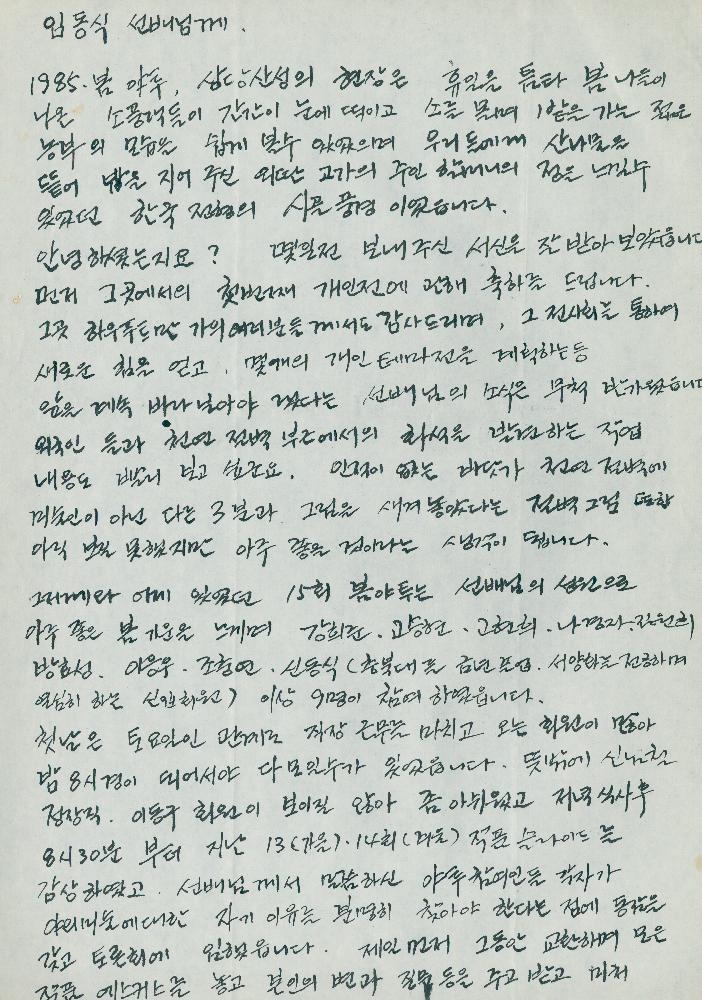 임동식 선배님께.
1985. 봄 야투, 상당산성의 현장은 휴일을 틈타 봄 나들이
나온 소풍객들이 간간이 눈에 띄이고 소를 몰며 밭을 가는 젊은
농부의 모습을 쉽게 볼수 있었으며 우리들에게 산나물을
뜯어 밥을 지어 주신 외딴 고가의 주인 할머니의 정을 느낄수
있었던 한국 전형의 시골풍경 이었습니다.
안녕하셨는지요? 몇일전 보내주신 서신은 잘 받아 보았습니다
먼저 그곳에서의 첫번째 개인전에 관해 축하를 드립니다.
그곳 하우푸트만 가의 여러분들께서도 감사드리며, 그 전시회를 통하여
새로운 힘을 얻고, 몇개의 개인 테라전을 계획하는등
앞을 계속 바라보아야 겠다는 선배님의 소식은 무척 반가웠습니다
외국인 들과 천연 절벽 부근에서의 화석을 발견하는 작업
내용도 빨리 보고 싶군요. 인적이 없는 바닷가 천연 절벽에
미술인이 아닌 다른 3분과 그림을 새겨놓았다는 절벽그림 또한
아직 보질 못했지만 아주 좋을 것이라는 생각이 듭니다.
그저께와 어제 있었던 15회 봄야투는 선배님의 성원으로
아주 좋은 봄 기운을 느끼며 강희준. 고승현. 고현희. 나경자. 정원희
방효성. 이응우. 조충연. 신동식(충북대를 금년졸업. 서양화를 전공하며
열심히 하는 신입회원) 이상 9명이 참여 하였읍니다.
첫날은 토요일인 관계로 직장 근무를 마치고 오는 회원이 많아
밤 8시경이 되어서야 다 모일수가 있었습니다. 뜻밖에 신남철
정장직. 이동구 회원이 보이질 않아 좀 아쉬웠고 저녁식사후
8시 30분 부터 지난 13(가을)·14회(겨울) 작품 슬라이드를
감상하였고. 선배님께서 말씀하신 야투참여인들 각자가
야외미술에대한 자기 이유를 분명히 찾아야 한다는 점에 동감을
갖고 토론회에 임했읍니다. 제일먼저 그동안 교환하며 모은
작품 엽서들을 놓고 본인의 변과 질문 등을 주고 받고